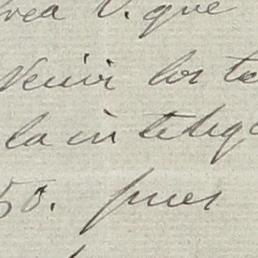 rea V. que
Venir los te
la intelige
50. pues